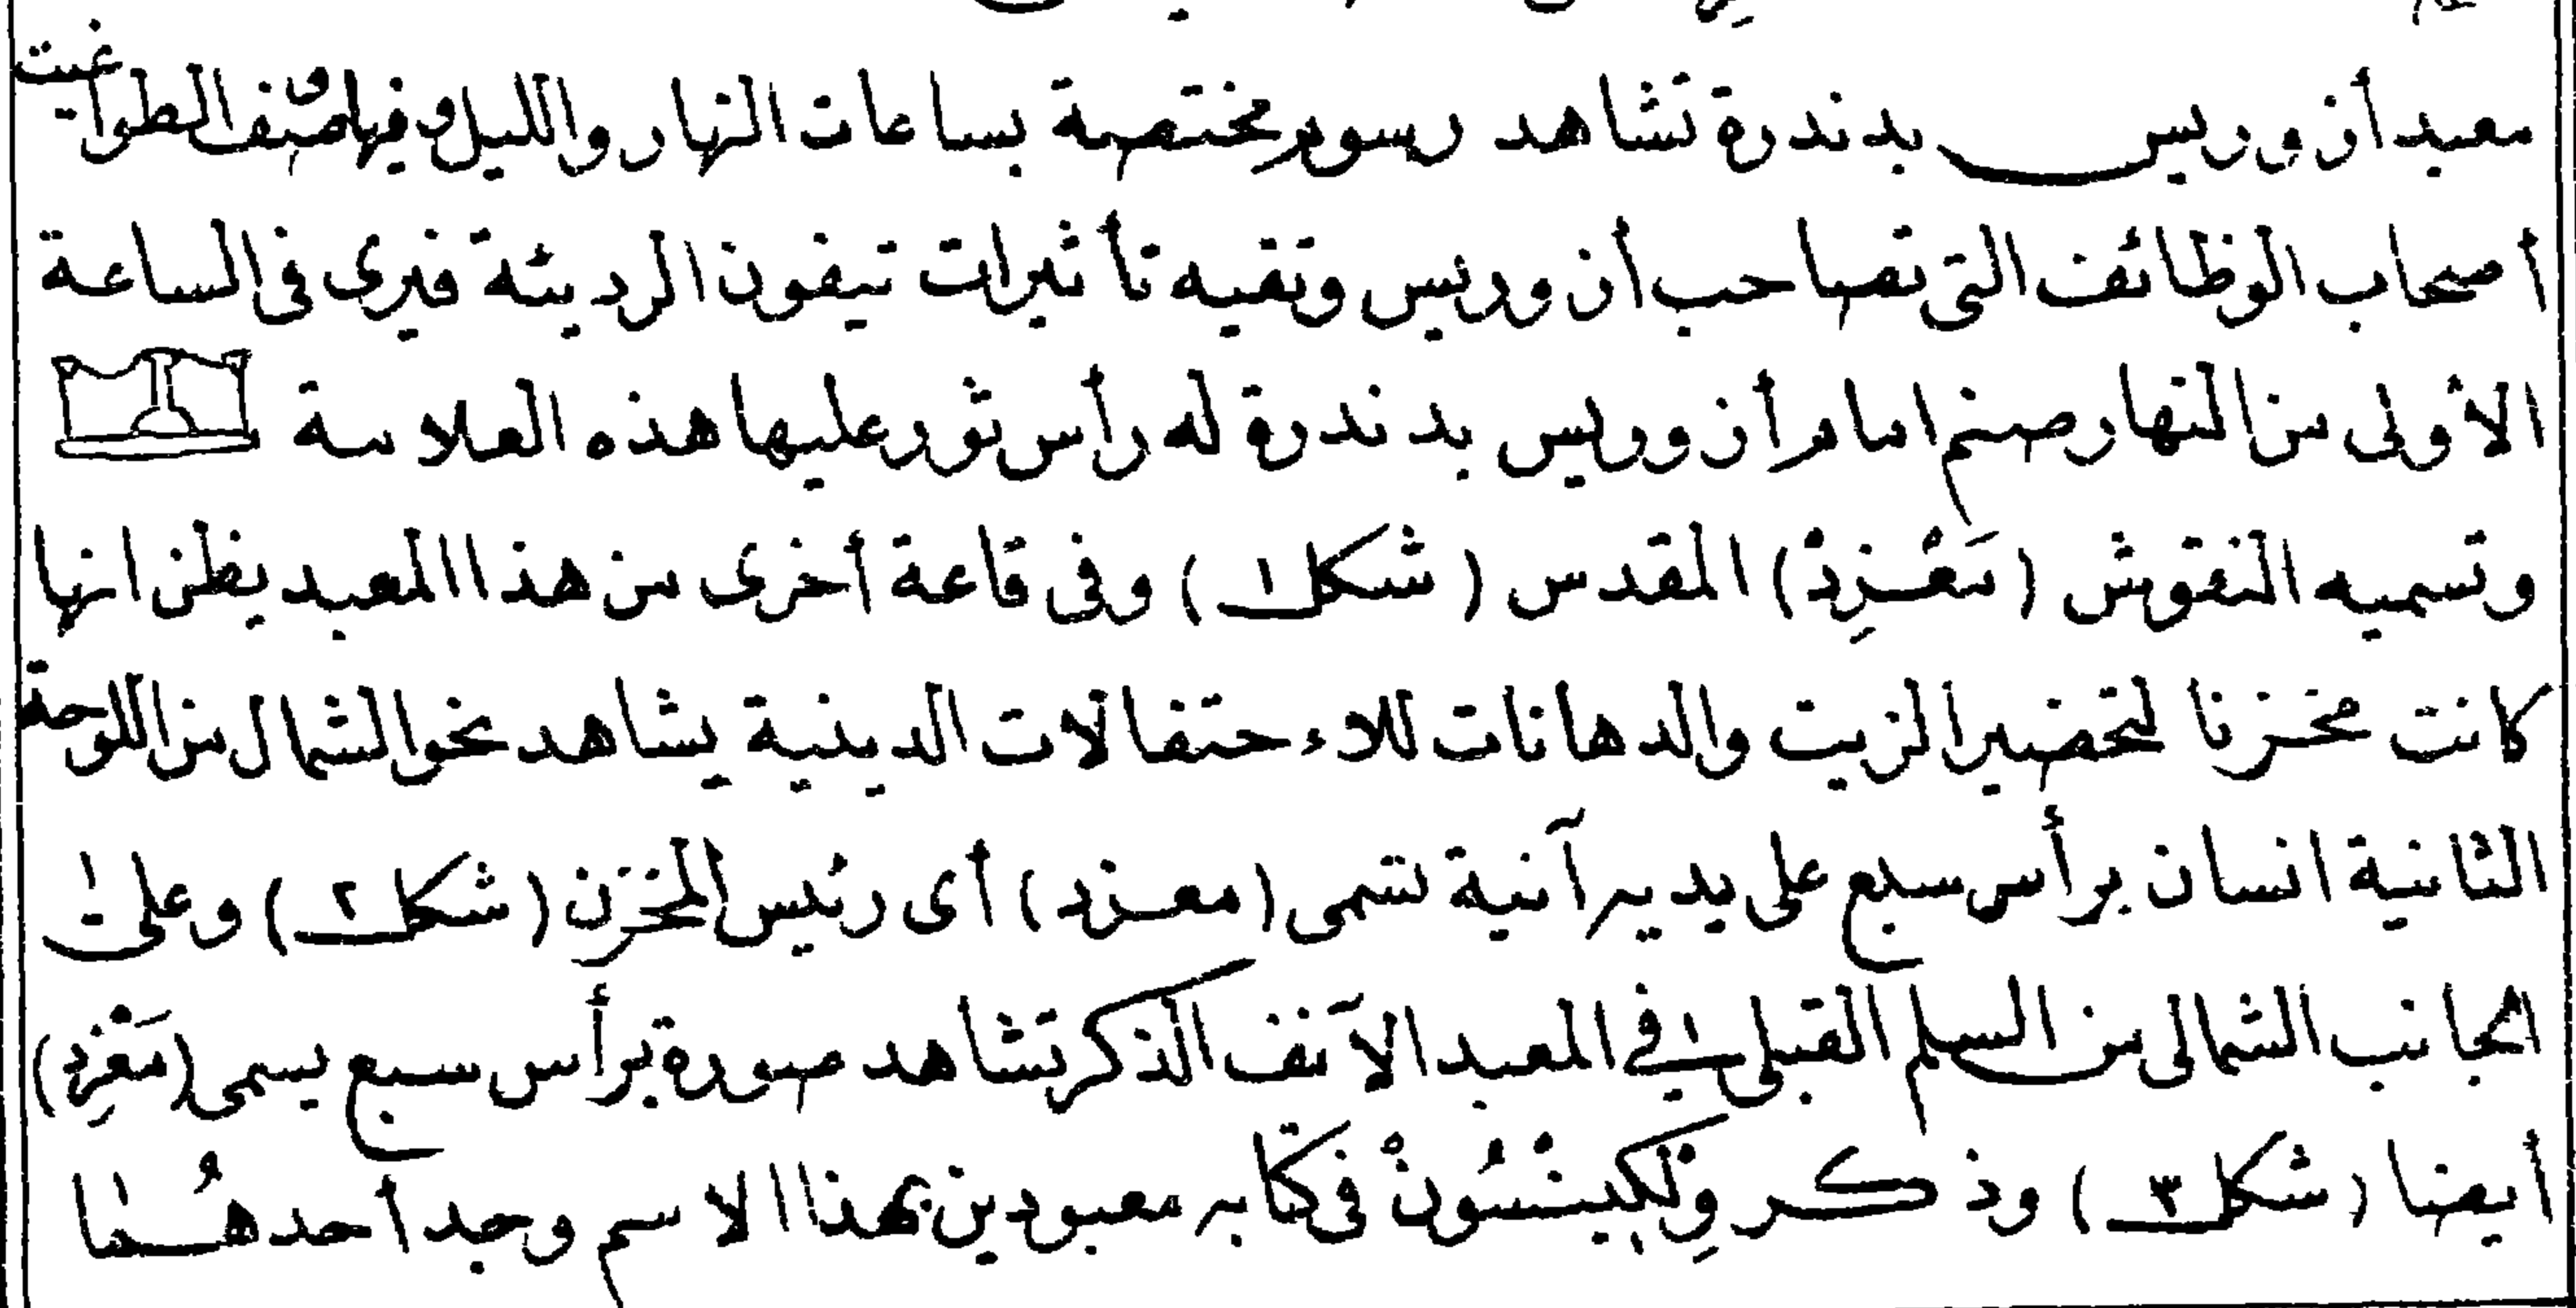 معبد أزوريس بدندرة تشاهد رسوم مختصة بساعات النهار والليل وفيها صنوف الطواغيت
أصحاب الوظائف التى تصاحب أزوريس وتقيه تأثيرات تيفون الرديئة فيرى فى الساعة
الأولى من النهار صنم امام أزوريس بدندرة له رأس ثور عليها هذه العلامة
وتسميه النقوش (مَعْـزِدْ) المقدس (شكل ١) وفى قاعة أخرى من هذا المعبد يظن انها
كانت مخزنا لتحضير الزيت والدهانات للاءحتفالات الدينية يشاهد نحو الشمال من اللوحة
الثانية انسان برأس سبع على يديه آنية تسمى (معـزد) أى رئيس المخزن (شكل ٢) وعلى
الجانب الشمالى من السلم القبلى فى المعبد الآنف الذكر تشاهد صورة برأس سبع يسمى (مَعْزِد)
أيضا (شكل ٣) وذكر وِلْكِينْسُونْ فى كتابه معبودين بهذا الاسم وجد أحدهُما